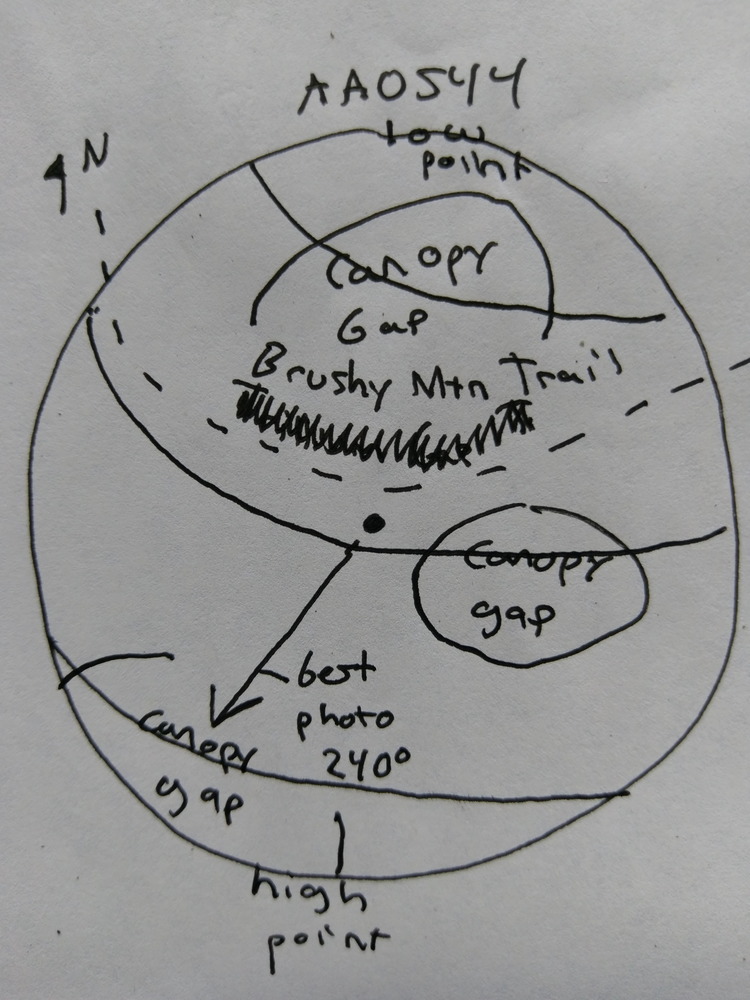 AA0544
N
low
point
Canopy
Gap
Brushy Mtn Trail
Canopy
gap
best
photo
240°
Canopy
gap
high
point